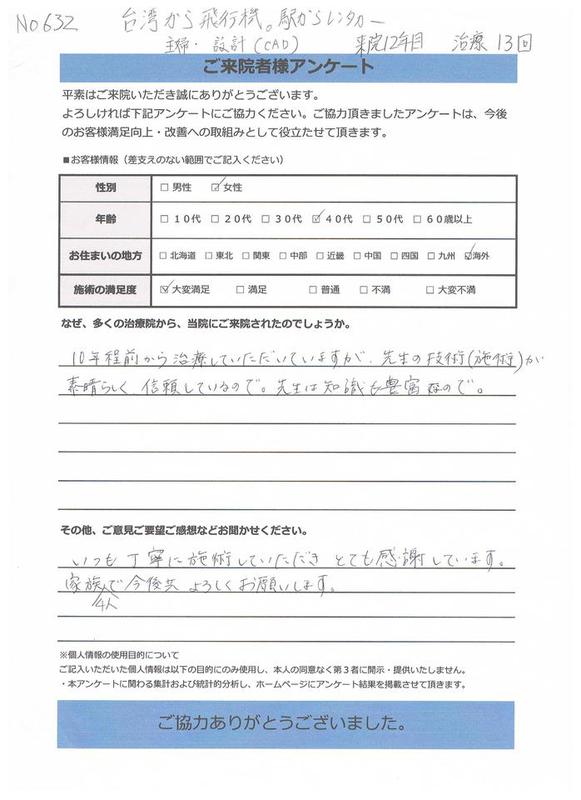 No632 台湾から飛行機。駅からレンタカー
主婦・設計(CAD) 来院12年目 治療13回
ご来院者様アンケート
平素はご来院いただき誠にありがとうございます。
よろしければ下記アンケートにご協力ください。ご協力頂きましたアンケートは、今後
のお客様満足向上・改善への取組みとして役立たせて頂きます。
■お客様情報（差支えのない範囲でご記入ください）
性別 □男性 ☑女性
年齢 □10代 □20代 □30代 ☑40代 □50代 □60歳以上
お住まいの地方 □北海道 □東北 □関東 □中部 □近畿 □中国 □四国 □九州 ☑海外
施術の満足度 ☑大変満足 □満足 □普通 □不満 □大変不満
なぜ、多くの治療院から、当院にご来院されたのでしょうか。
10年程前から治療していただいていますが、先生の技術(施術)が
素晴らしく、信頼しているので。先生は知識も豊富なので。
その他、ご意見ご要望ご感想などお聞かせください。
いつも丁寧に施術していただき とても感謝しています。
家族で今後共 よろしくお願いします。
4人
※個人情報の使用目的について
ご記入いただいた個人情報は以下の目的にのみ使用し、本人の同意なく第3者に開示・提供いたしません。
・本アンケートに関わる集計および統計的分析し、ホームページにアンケート結果を掲載させて頂きます。
ご協力ありがとうございました。